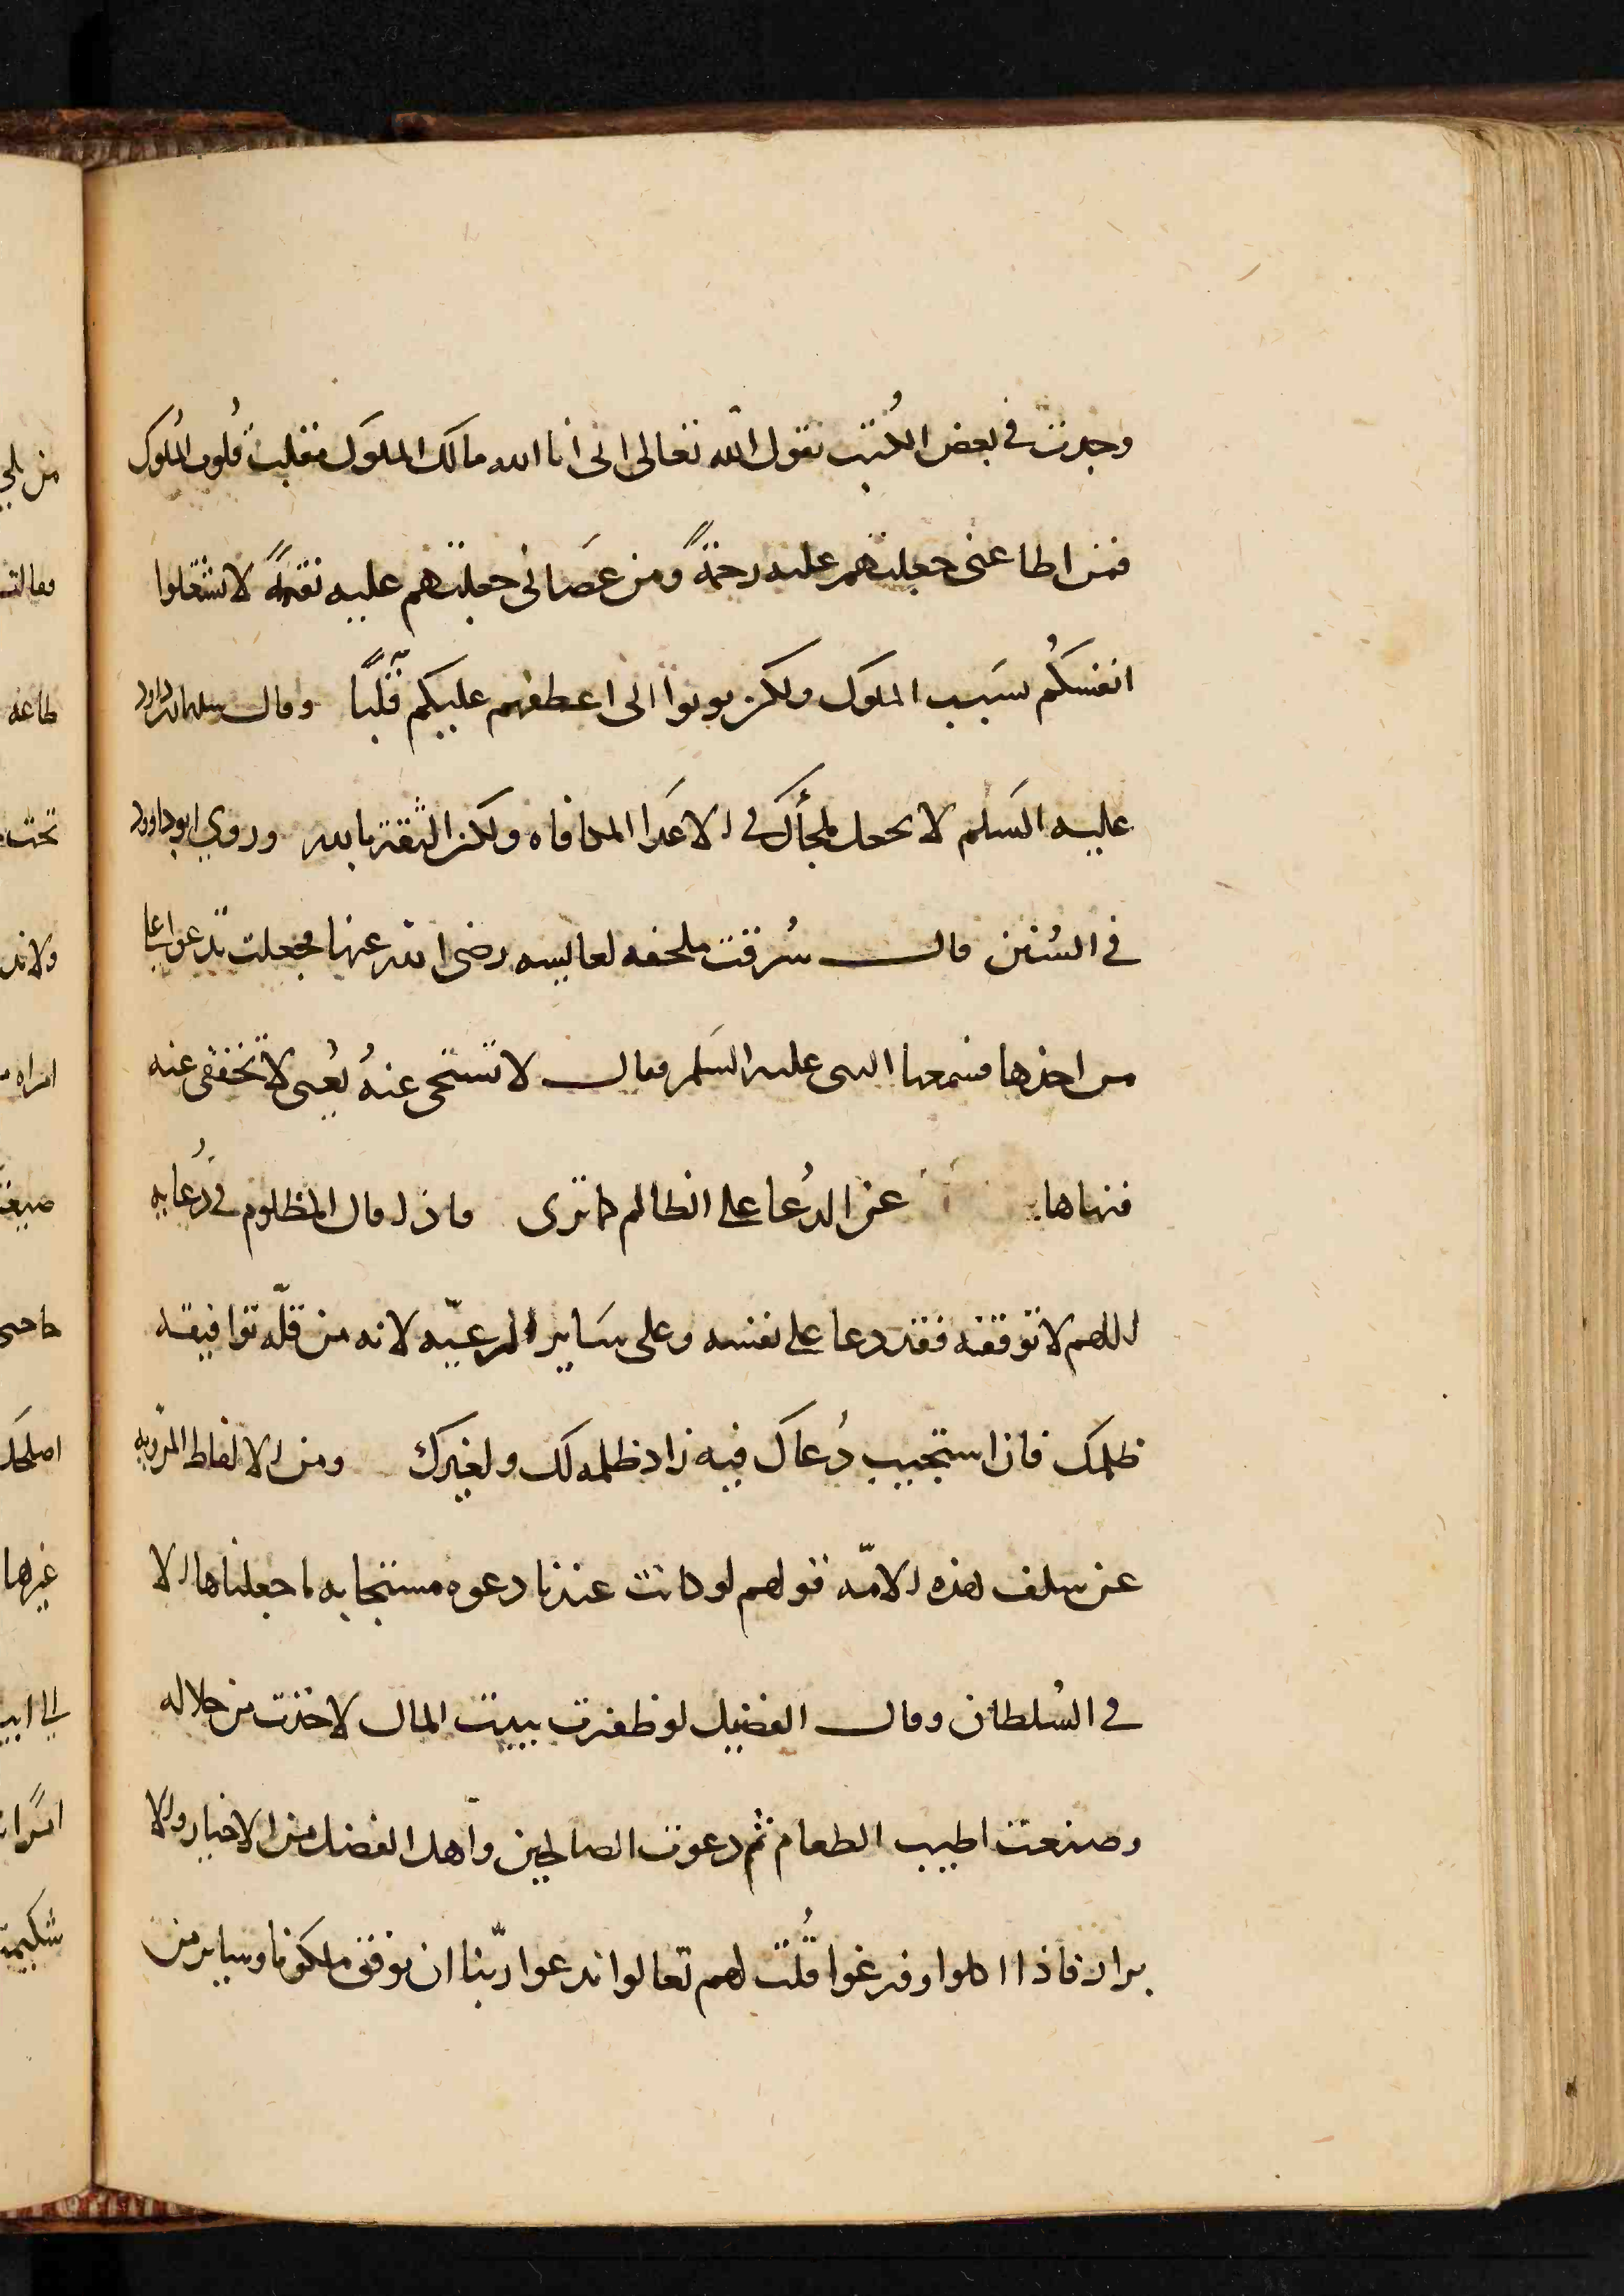 وجدت في بعض الكتب يقول الله تعالى انى انا الله مالك الملوك مقلب قُلوب المُلوك
فمن اطاعنى جعلتهم عليه رحمةً ومن عصَانى جعلتهم عليه نقمةً لا تشغلوا
انفسكُم بسَبب الملوك ولكن توبوا الى اعطفهم عليكم قلبًا وقال سليمان بن داود
عليه السَلم لا تجعل ملجأك في الاعَدا المكافاه ولكن الثقة بالله وروي ابو داود
في السُنن قال سُرقت ملحفه لعايشه رضى الله عنها فجعلت تدعوا على
من اخذها فسمعها النبى عليه السَلم فقال لا تسبخى عنهُ يُعنى لا تخففى عنه
فنهاها عن الدُعا على الظالم كما ترى واذا قال المظلوم في دُعايه
اللهم لا توفقه فقد دعا على نفسه وعلى سَاير الرعيّه لانه من قلّه توافيقه
ظلمك فاذا استجيب دُعاك فيه زاد ظلمه لك ولغيرك ومن الالفاظ المرويه
عن سلف هذه الامّه قولهم لو كانت عندنا دعوه مستجابه ما جعلناها الا
في السُلطان وقال الفضيل لو ظفرت ببيت المال لاخذت من حلاله
وصنعت اطيب الطعام ثم دعوت الصالحين واهل الفضل من الاخيار والا
برار فاذا اكلوا وفرغوا قُلت لهم تعالوا ندعوا ربّنا ان يوفق ملكونا وساير من